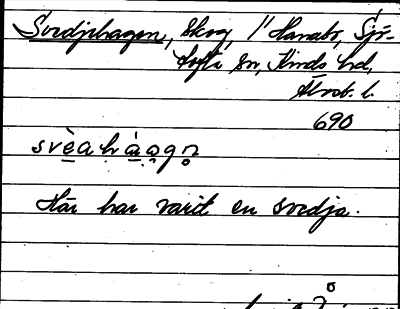 Svedjehagen, skog, 1/1 Hanabo, Sjö-
tofta sn, Kinds hd,
Älvsb. l.
690
svè̱a hà̱a̱gn̥
Här har varit en svedja.